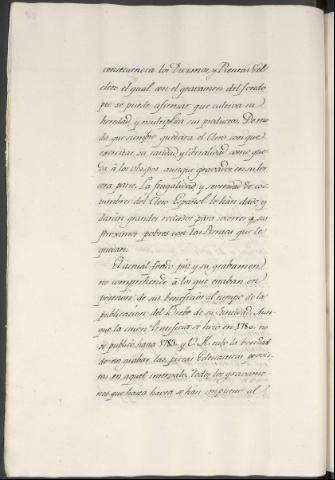 consecuencia los Diezmos, y Rentas del
clero el qual con el gravamen del fondo
pio se puede afirmar que cultiva su
heredad, y multiplica sus productos. De mo
do que siempre quedará el Clero con que
exercitar su caridad y liberalidad como que
da á los obispos aunque gravados en su ter
cera parte. La frugalidad y severidad de cos
tumbres del Clero Español le hàn dado, y
daràn grandes recursos para socorrer a sus
proximos pobres con las Rentas que le
quedan.
El actual fondo pio, y su grabamen
no comprehende á los que estaban en
posesion de sus beneficios al tiempo de la
publicacion del Breve de su Santidad. Aun
que la union Beneficial se hizo en 1780. no
se publicó hasta 1783. y V. M. tubo la bondad
de no grabar las piezas Eclesiasticas provis
tas en aquel intervalo. Todos los gravame
nes que hasta ahora se han impuesto al